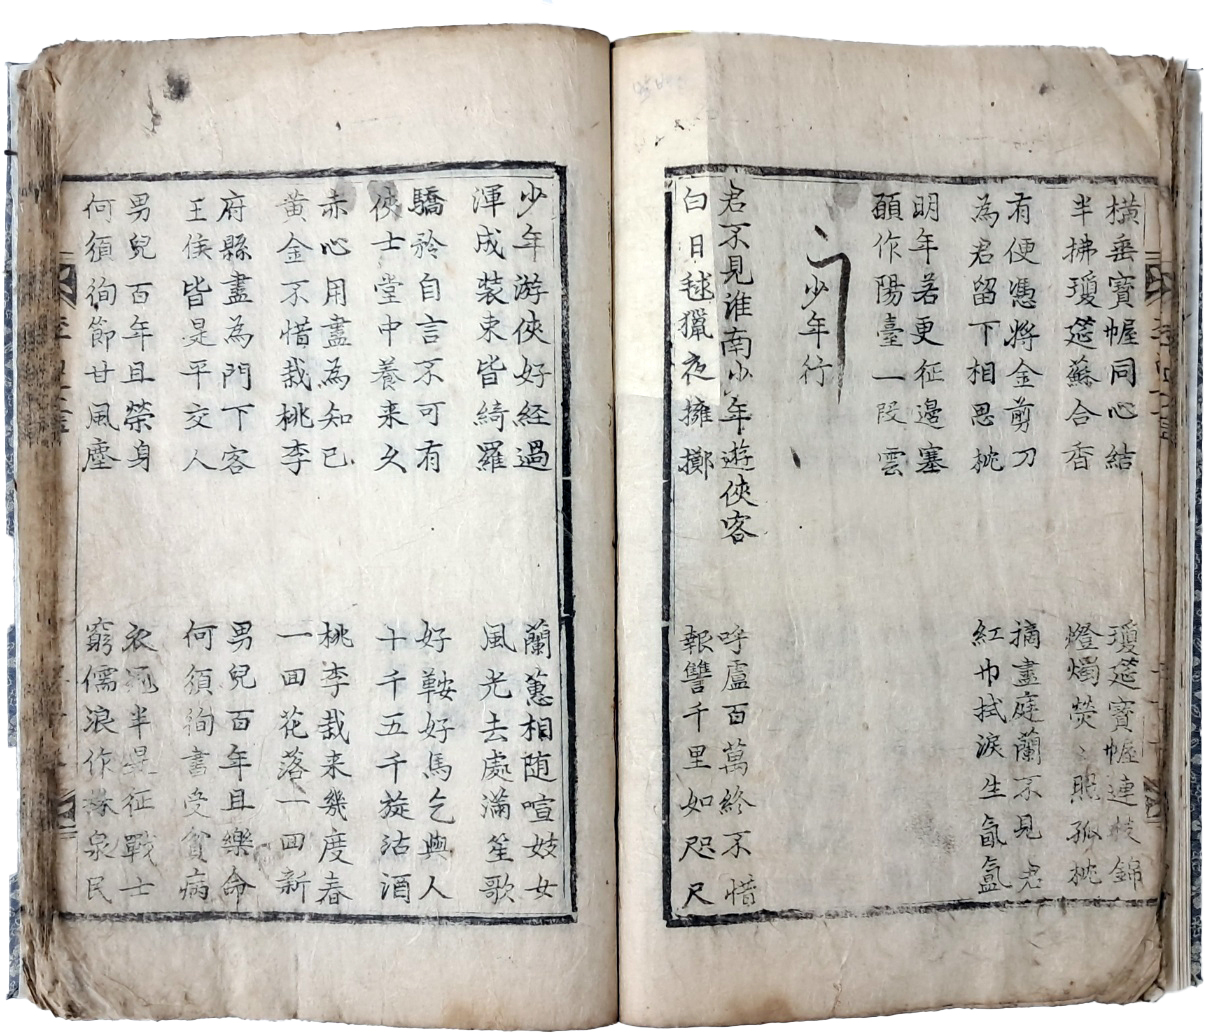 橫垂寶幄同心結
半拂瓊筵蘇合香
瓊筵寶幄連枝錦
燈燭熒〻照孤枕
有便憑將金剪刀
為君留下相思枕
摘盡庭蘭不見君
紅巾拭淚生氤氳
明年若更征邊塞
願作陽臺一段雲
少年行
君不見淮南少年遊俠客
白日毬獵夜擁擲
呼盧百萬終不惜
報讐千里如咫尺
少年游俠好経過
渾成裝束皆綺羅
蘭蕙相随喧妓女
風光去處滿笙歌
驕矜自言不可有
俠士堂中養来久
好鞍好馬乞與人
十千五千旋沽酒
赤心用盡為知己
黃金不惜栽桃李
桃李栽来幾度春
一回花落一回新
府縣盡為門下客
王侯皆是平交人
男兒百年且樂命
何須徇書受貧病
男兒百年且榮身
何須徇節甘風塵
衣冠半是征戰士
窮儒浪作林泉民